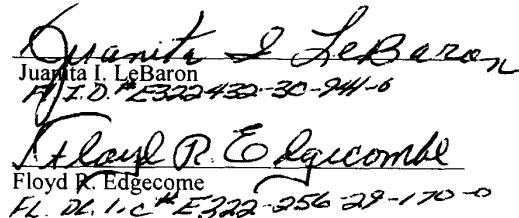 Juanita I LeBaron
Juanita I. LeBaron
Fl I.D.# E322-432-30-941-0
Floyd R. Edgecombe
Floyd R. Edgecome
FL. DL. Lic# E322-256-29-170-0